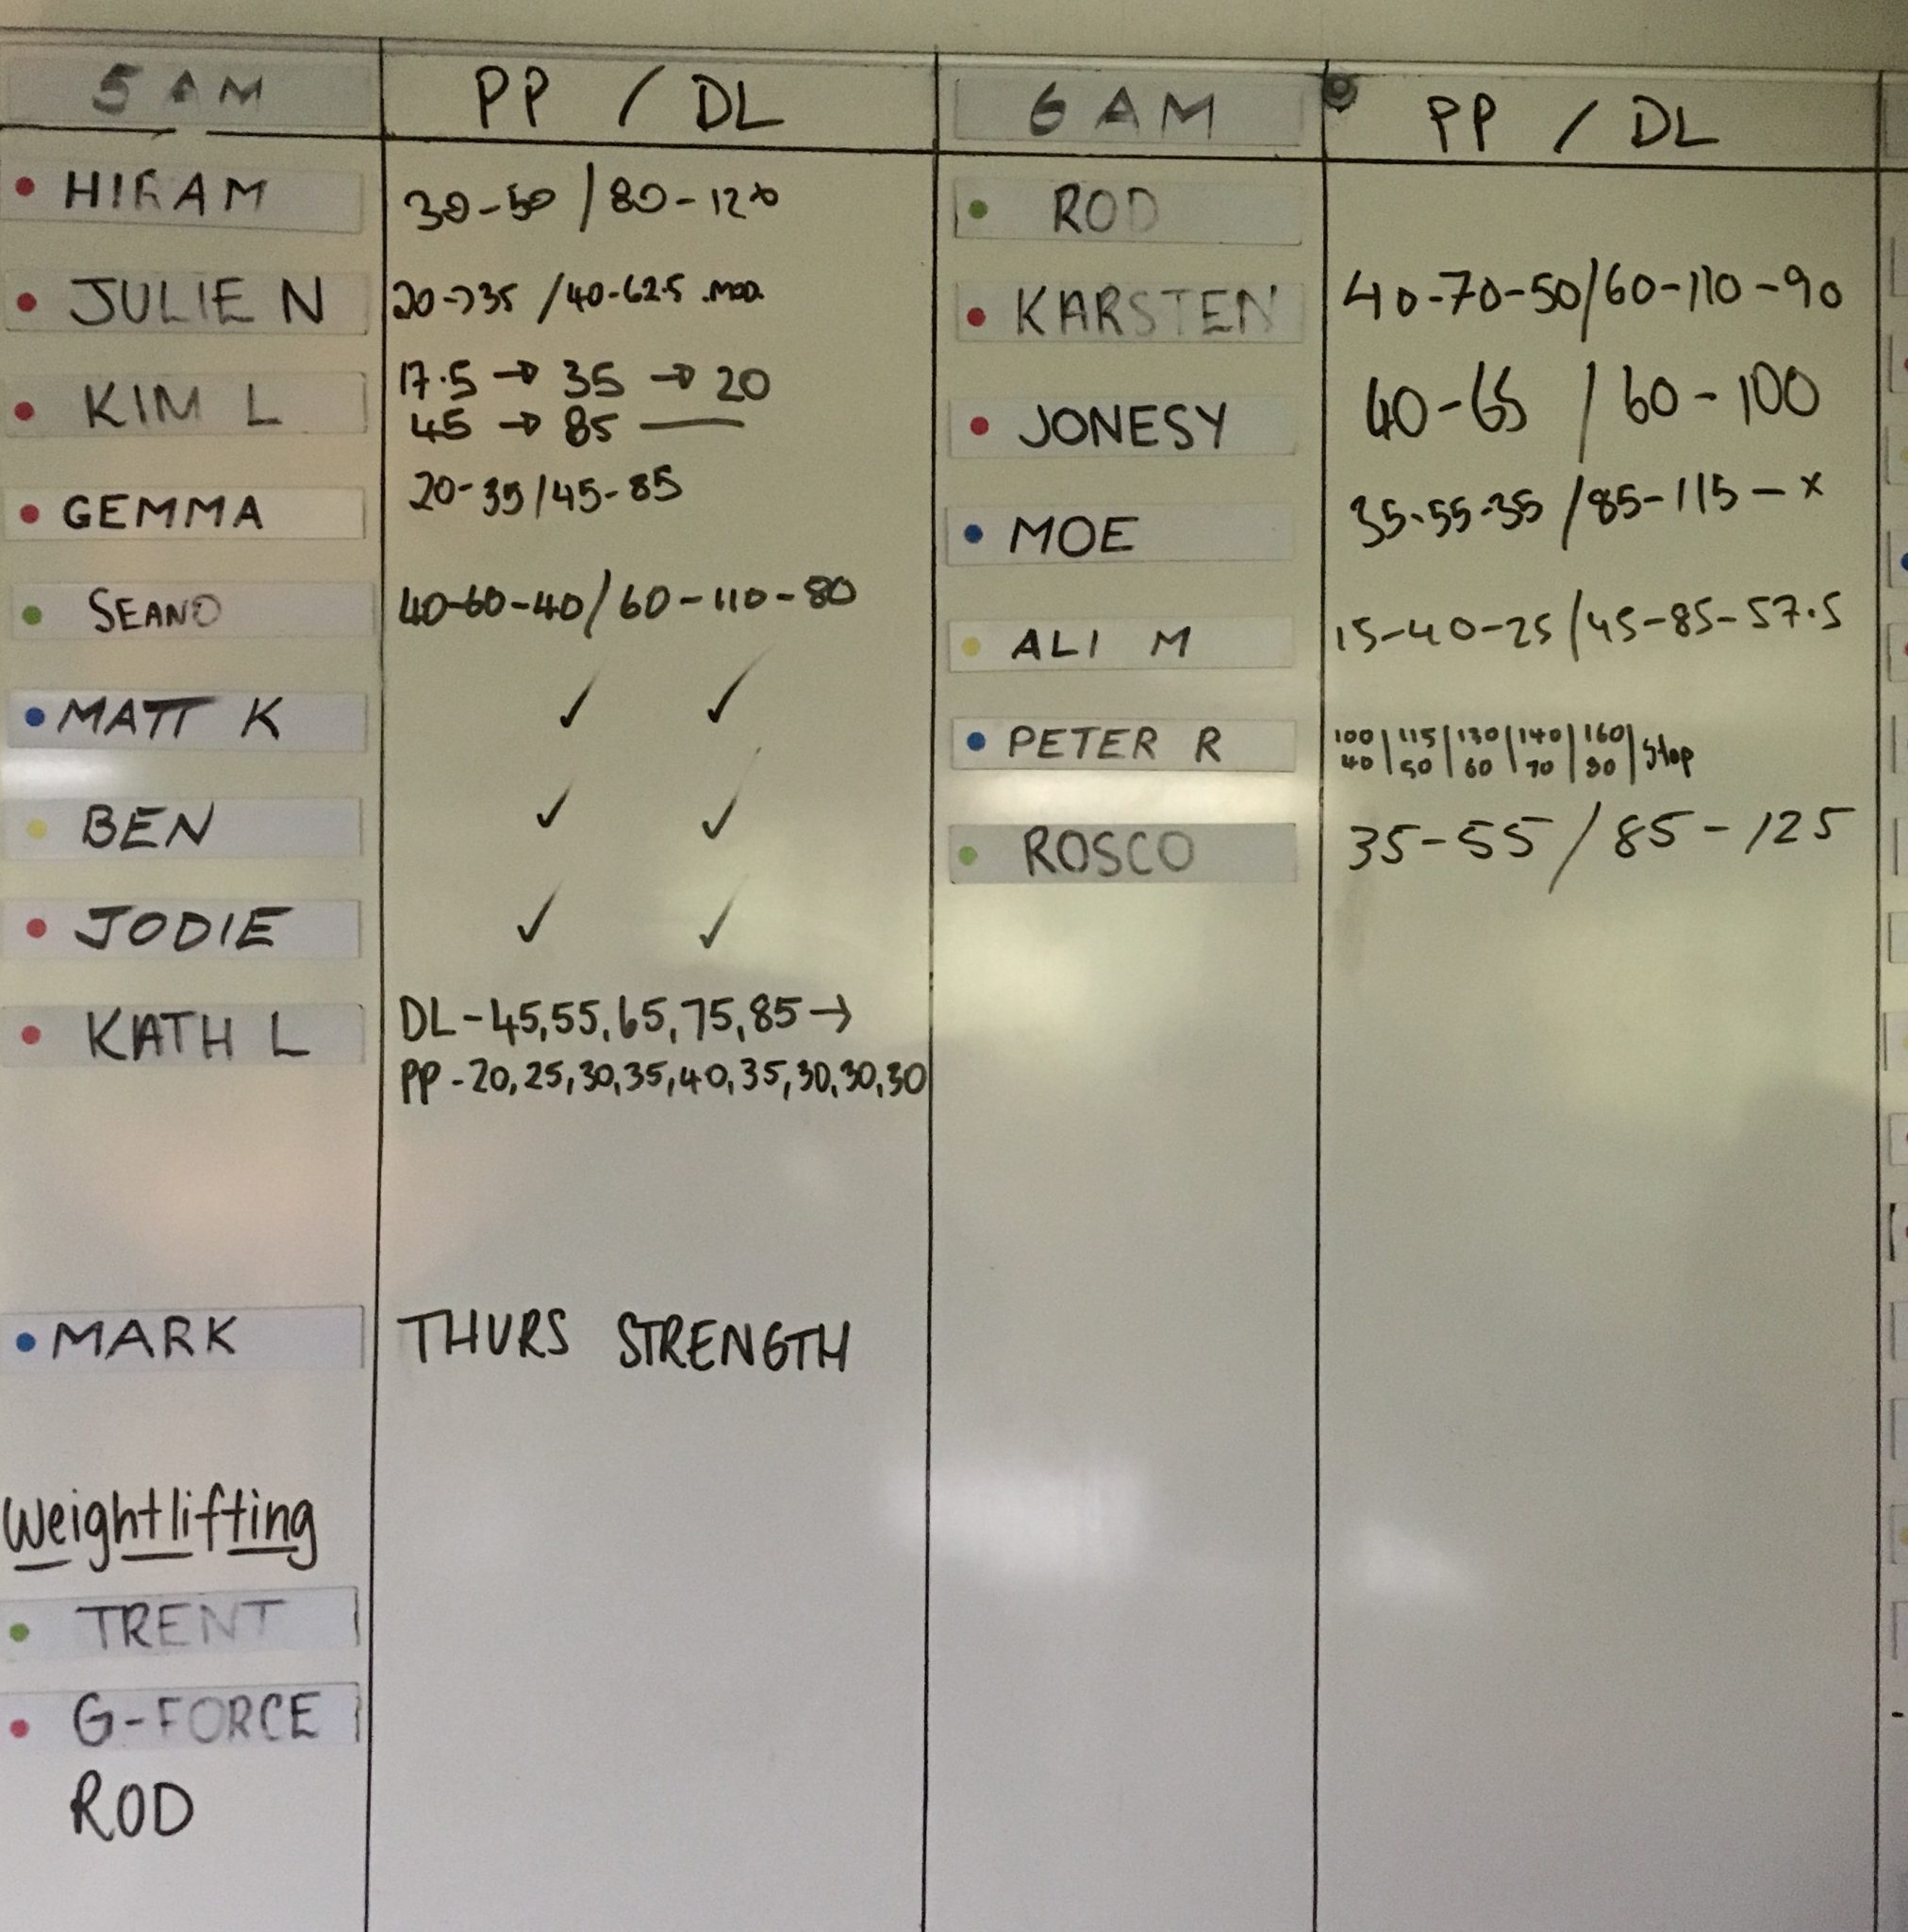 5 AM
PP / DL
HIRAM
30-50 / 80-120
JULIE N
20→35 / 40-62.5 .MOD.
KIM L
17.5 → 35 → 20
45 → 85 —
GEMMA
20-35/45-85
SEANO
40-60-40/60-110-80
MATT K
✓ ✓
BEN
✓ ✓
JODIE
✓ ✓
KATH L
DL-45,55,65,75,85→
PP-20,25,30,35,40,35,30,30,30
MARK
THURS STRENGTH
Weightlifting
TRENT
G-FORCE
ROD
6 AM
PP / DL
ROD
KARSTEN
40-70-50/60-110-90
JONESY
40-65 / 60-100
MOE
35-55-35 /85-115-x
ALI M
15-40-25/45-85-57.5
PETER R
100 | 115 | 130 | 140 | 160 | Stop
40 | 50 | 60 | 70 | 80 |
ROSCO
35-55 / 85-125